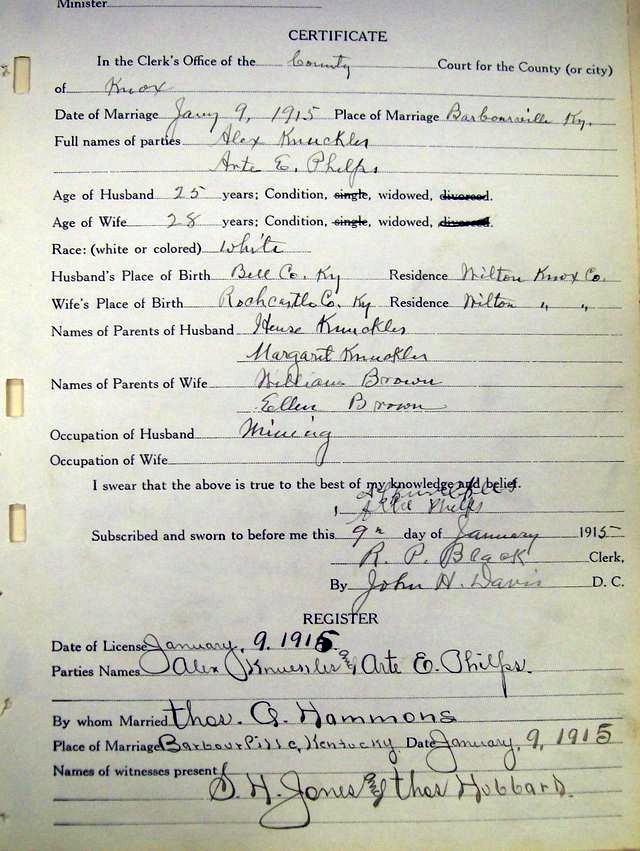 Minister
CERTIFICATE
In the Clerk's Office of the County Court for the County (or city)
of Knox
Date of Marriage Jany 9, 1915 Place of Marriage Barbourville Ky.
Full names of parties Alex Knuckles
Arte E. Phelps
Age of Husband 25 years; Condition, single, widowed, divorced.
Age of Wife 28 years; Condition, single, widowed, divorced.
Race: (white or colored) White
Husband's Place of Birth Bell Co. Ky Residence Wilton Knox Co.
Wife's Place of Birth Rockcastle Co. Ky Residence Wilton " "
Names of Parents of Husband Knuckles
Margaret Knuckles
Names of Parents of Wife William Brown
Ellen Brown
Occupation of Husband Mining
Occupation of Wife
I swear that the above is true to the best of my knowledge and belief.
Phelps
Subscribed and sworn to before me this 9 day of January 1915
R. P. Black Clerk,
By John H. Davis D. C.
REGISTER
Date of License January, 9. 1915.
Parties Names Alex and Arte E. Philps.
By whom Married thos. G. Hammons
Place of Marriage Kentucky Date January, 9, 1915
Names of witnesses present S. H. Jones and thos Hubbard.